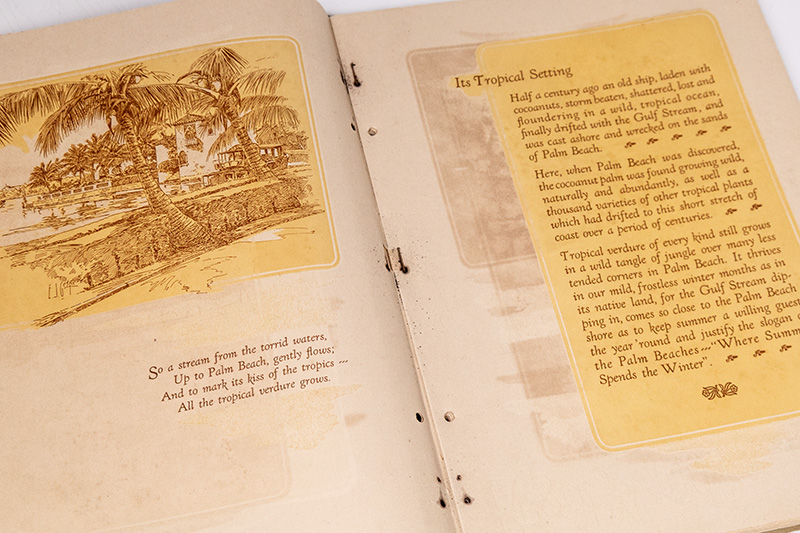 So a stream from the torrid waters,
Up to Palm Beach, gently flows;
And to mark its kiss of the tropics ---
All the tropical verdure grows.
Its Tropical Setting
Half a century ago an old ship, laden with
cocoanuts, storm beaten, shattered, lost and
floundering in a wild, tropical ocean,
finally drifted with the Gulf Stream, and
was cast ashore and wrecked on the sands
of Palm Beach.
Here, when Palm Beach was discovered,
the cocoanut palm was found growing wild,
naturally and abundantly, as well as a
thousand varieties of other tropical plants
which had drifted to this short stretch of
coast over a period of centuries.
Tropical verdure of every kind still grows
in a wild tangle of jungle over many less
tended corners in Palm Beach. It thrives
in our mild, frostless winter months as in
its native land, for the Gulf Stream dip-
ping in, comes so close to the Palm Beach
shore as to keep summer a willing guest
the year 'round and justify the slogan
the Palm Beaches---"Where Summ
Spends the Winter".